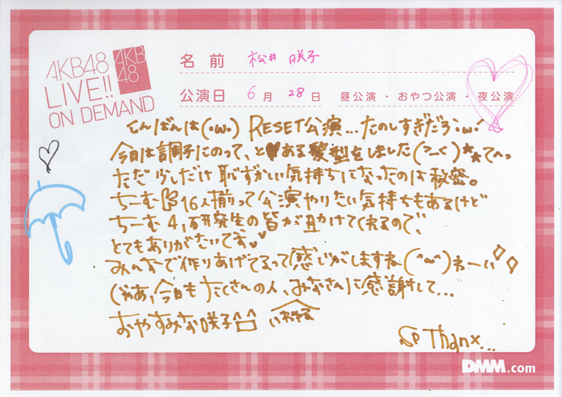 AKB48
LIVE!!
ON DEMAND
AKB
48
名前 松井 咲子
公演日 6月 28日 昼公演・おやつ公演・夜公演
こんばんは(・ω・) RESET公演…たのしすぎだろ・ω・
今日は調子にのって、とある髪型をしました
ただ 少しだけ恥ずかしい気持ちになったのは秘密。
ちーむB16人揃って公演やりたい気持ちもあるけど
ちーむ4,研究生の皆が助けてくれるので、
とてもありがたいです
みんなで作りあげてるって感じがしますね(^ω^)ねーい
じゃあ、今日もたくさんの人、みなさんに感謝して…
おやすみな咲子
So Thanx...
DMM.com